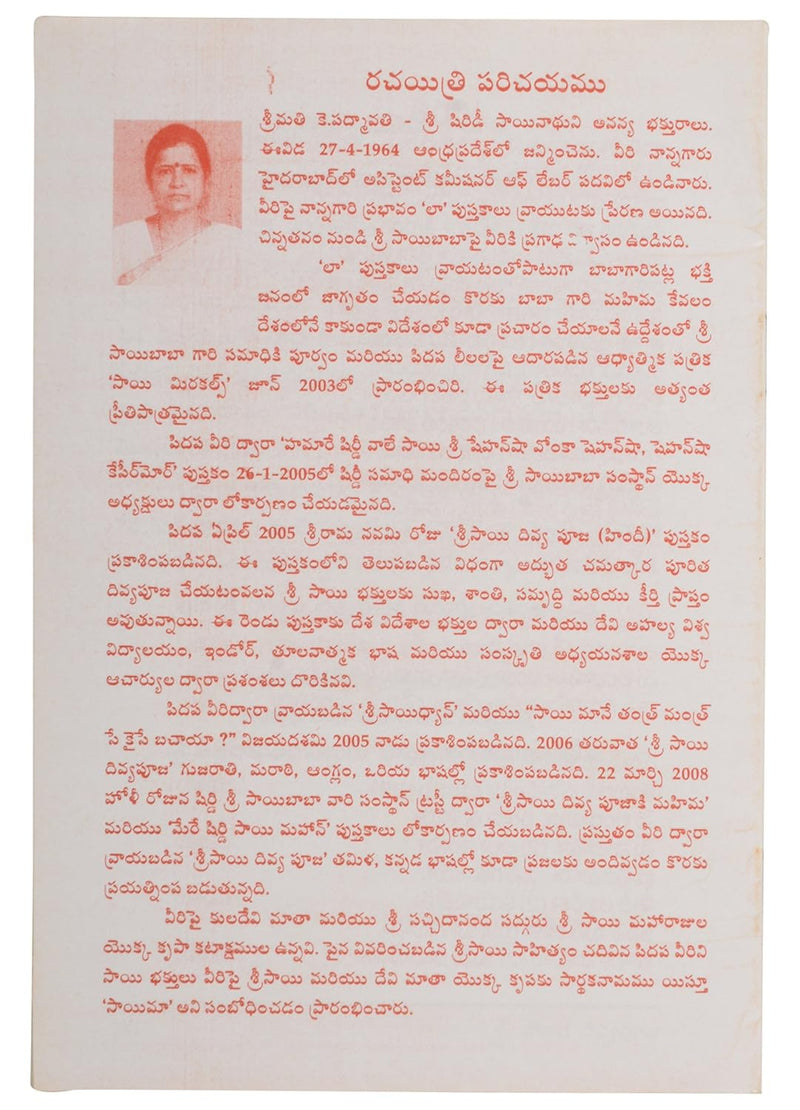 రచయిత్రి పరిచయము
శ్రీమతి కె.పద్మావతి - శ్రీ షిరిడీ సాయినాథుని అనన్య భక్తురాలు.
ఈవిడ 27-4-1964 ఆంధ్రప్రదేశ్‌లో జన్మించెను. వీరి నాన్నగారు
హైదరాబాద్‌లో అసిస్టెంట్ కమీషనర్ ఆఫ్ లేబర్ పదవిలో ఉండినారు.
వీరిపై నాన్నగారి ప్రభావం ‘లా’ పుస్తకాలు వ్రాయుటకు ప్రేరణ అయినది.
చిన్నతనం నుండి శ్రీ సాయిబాబాపై వీరికి ప్రగాఢ ఉండినది.
‘లా’ పుస్తకాలు వ్రాయటంతోపాటుగా బాబాగారిపట్ల భక్తి
జనంలో జాగృతం చేయడం కొరకు బాబా గారి మహిమ కేవలం
దేశంలోనే కాకుండా విదేశంలో కూడా ప్రచారం చేయాలనే ఉద్దేశంతో శ్రీ
సాయిబాబా గారి సమాధికి పూర్వం మరియు పిదప లీలలపై ఆదారపడిన ఆధ్యాత్మిక పత్రిక
‘సాయి మిరకల్స్’ జూన్ 2003లో ప్రారంభించిరి. ఈ పత్రిక భక్తులకు అత్యంత
ప్రీతిపాత్రమైనది.
పిదప వీరి ద్వారా ‘హమారే షిర్డీ వాలే సాయి శ్రీ షేహన్‌షా వోంకా షెహన్‌షా, షెహన్‌షా
కేసీర్‌మోర్’ పుస్తకం 26-1-2005లో షిర్డీ సమాధి మందిరంపై శ్రీ సాయిబాబా సంస్థాన్ యొక్క
అధ్యక్షులు ద్వారా లోకార్పణం చేయడమైనది.
పిదప ఏప్రిల్ 2005 శ్రీరామ నవమి రోజు ‘శ్రీసాయి దివ్య పూజ (హిందీ)’ పుస్తకం
ప్రకాశింపబడినది. ఈ పుస్తకంలోని తెలుపబడిన విధంగా అద్భుత చమత్కార పూరిత
దివ్యపూజ చేయటంవలన శ్రీ సాయి భక్తులకు సుఖ, శాంతి, సమృద్ధి మరియు కీర్తి ప్రాప్తం
అవుతున్నాయి. ఈ రెండు పుస్తకాకు దేశ విదేశాల భక్తుల ద్వారా మరియు దేవి అహల్య విశ్వ
విద్యాలయం, ఇండోర్, తూలనాత్మక భాష మరియు సంస్కృతి అధ్యయనశాల యొక్క
ఆచార్యుల ద్వారా ప్రశంశలు దొరికినవి.
పిదప వీరిద్వారా వ్రాయబడిన ‘శ్రీసాయిధ్యాన్’ మరియు “సాయి మానే తంత్ర్ మంత్ర్
సే కైసే బచాయా ?” విజయదశమి 2005 నాడు ప్రకాశింపబడినది. 2006 తరువాత ‘శ్రీ సాయి
దివ్యపూజ’ గుజరాతి, మరాఠి, ఆంగ్లం, ఒరియ భాషల్లో ప్రకాశింపబడినది. 22 మార్చి 2008
హోళీ రోజున షిర్డి శ్రీ సాయిబాబా వారి సంస్థాన్ ట్రస్టీ ద్వారా ‘శ్రీసాయి దివ్య పూజాకి మహిమ’
మరియు ‘మేరే షిర్డి సాయి మహాన్’ పుస్తకాలు లోకార్పణం చేయబడినది. ప్రస్తుతం వీరి ద్వారా
వ్రాయబడిన ‘శ్రీసాయి దివ్య పూజ’ తమిళ, కన్నడ భాషల్లో కూడా ప్రజలకు అందివ్వడం కొరకు
ప్రయత్నింప బడుతున్నది.
వీరిపై కులదేవి మాతా మరియు శ్రీ సచ్చిదానంద సద్గురు శ్రీ సాయి మహారాజుల
యొక్క కృపా కటాక్షముల ఉన్నవి. పైన వివరించబడిన శ్రీసాయి సాహిత్యం చదివిన పిదప వీరిని
సాయి భక్తులు వీరిపై శ్రీసాయి మరియు దేవి మాతా యొక్క కృపకు సార్థకనామము యిస్తూ
‘సాయిమా’ అని సంబోధించడం ప్రారంభించారు.